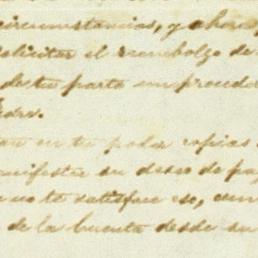 circunstancias, y ahora
solicitar el reembolzo de
de tu parte un proced
edro.
an en tu poder copias
anifestar su deseo de pa
no te satisface eso, con
de la cuenta desde su